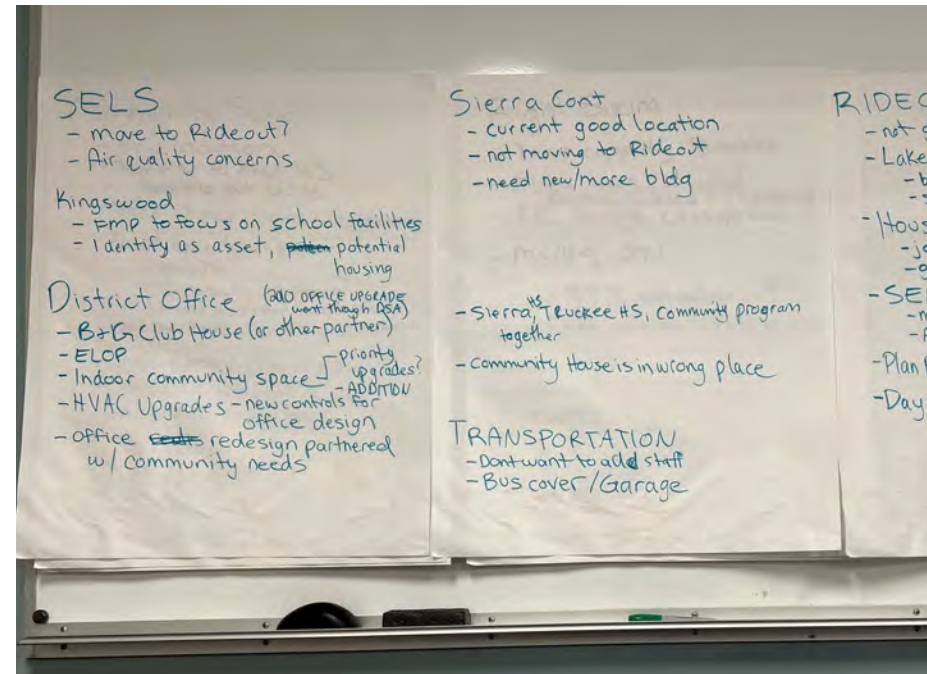 SELS
- move to Rideout?
- Air quality concerns
Kingswood
- FMP to focus on school facilities
- Identify as asset, potential
housing
District Office (2010 OFFICE UPGRADE
went though DSA)
- B+G Club House (or other partner)
- ELOP
- Indoor community space
priority
upgrades?
- ADDITION
- HVAC Upgrades - new controls for
office design
- Office redesign partnered
w/ community needs
Sierra Cont
- current good location
- not moving to Rideout
- need new/more bldg
- Sierra HS, Truckee HS, Community program
together
- Community House is in wrong place
TRANSPORTATION
- Dont want to add staff
- Bus cover/Garage
- not
- Lake
- SE
- Plan
- Day